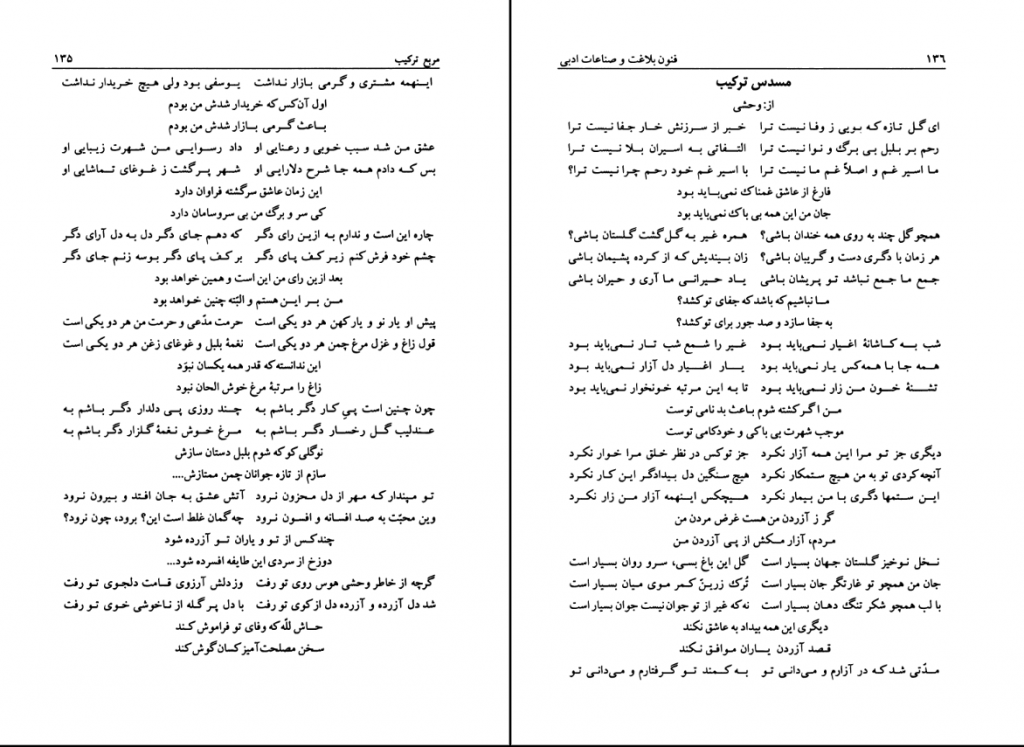 ١٣٦ فنون بلاغت و صناعات ادبی
مسدس ترکیب
از: وحشی
ای گل تازه که بویی ز وفا نیست ترا خبر از سرزنش خار جفا نیست ترا
رحم بر بلبل بی برگ و نوا نیست ترا التفاتی به اسیران بلا نیست ترا
ما اسیر غم و اصلاً غم ما نیست ترا با اسیر غم خود رحم چرا نیست ترا؟
فارغ از عاشق غمناک نمی‌باید بود
جان من این همه بی باک نمی‌باید بود
همچو گل چند به روی همه خندان باشی؟ همره غیر به گل‌گشت گلستان باشی؟
هر زمان با دگری دست و گریبان باشی؟ زان بیندیش که از کرده پشیمان باشی
جمع ما جمع نباشد تو پریشان باشی یاد حیرانی ما آری و حیران باشی
ما نباشیم که باشد که جفای تو کشد؟
به جفا سازد و صد جور برای تو کشد؟
شب به کاشانهٔ اغیار نمی‌باید بود غیر را شمع شب تار نمی‌باید بود
همه جا با همه‌کس یار نمی‌باید بود یار اغیار دل آزار نمی‌باید بود
تشنهٔ خون من زار نمی‌باید بود تا به این مرتبه خونخوار نمی‌باید بود
من اگر کشته شوم باعث بد نامی توست
موجب شهرت بی باکی و خودکامی توست
دیگری جز تو مرا این همه آزار نکرد جز تو کس در نظر خلق مرا خوار نکرد
آنچه کردی تو به من هیچ ستمکار نکرد هیچ سنگین دل بیدادگر این کار نکرد
این ستمها دگری با من بیمار نکرد هیچکس اینهمه آزار من زار نکرد
گر ز آزردن من هست غرض مردن من
مردم، آزار مکش از پی آزردن من
نخل نوخیز گلستان جهان بسیار است گل این باغ بسی، سرو روان بسیار است
جان من همچو تو غارتگر جان بسیار است تُرک زرین کمر موی میان بسیار است
با لب همچو شکر تنگ دهان بسیار است نه که غیر از تو جوان نیست جوان بسیار است
دیگری این همه بیداد به عاشق نکند
قصد آزردن یاران موافق نکند
مدّتی شد که در آزارم و می‌دانی تو به کمند تو گرفتارم و می‌دانی تو
مربع ترکیب ١٣٥
اینهمه مشتری و گرمی بازار نداشت یوسفی بود ولی هیچ خریدار نداشت
اول آن‌کس که خریدار شدش من بودم
باعث گرمی بازار شدش من بودم
عشق من شد سبب خوبی و رعنایی او داد رسوایی من شهرت زیبایی او
بس که دادم همه جا شرح دلارایی او شهر پرگشت ز غوغای تماشایی او
این زمان عاشق سرگشته فراوان دارد
کی سر و برگ من بی سروسامان دارد
چاره این است و ندارم به ازین رای دگر که دهم جای دگر دل به دل آرای دگر
چشم خود فرش کنم زیر کف پای دگر بر کف پای دگر بوسه زنم جای دگر
بعد ازین رای من این است و همین خواهد بود
من بر این هستم و البّته چنین خواهد بود
پیش او یار نو و یار کهن هر دو یکی است حرمت مدّعی و حرمت من هر دو یکی است
قول زاغ و غزل مرغ چمن هر دو یکی است نغمهٔ بلبل و غوغای زغن هر دو یکی است
این ندانسته که قدر همه یکسان نبوَد
زاغ را مرتبهٔ مرغ خوش الحان نبود
چون چنین است پیِ کار دگر باشم به چند روزی پی دلدار دگر باشم به
عندلیب گل رخسار دگر باشم به مرغ خوش نغمهٔ گلزار دگر باشم به
نوگلی کو که شوم بلبل دستان سازش
سازم از تازه جوانان چمن ممتازش....
تو مپندار که مهر از دل محزون نرود آتش عشق به جان افتد و بیرون نرود
وین محبّت به صد افسانه و افسون نرود چه گمان غلط است این؟ برود، چون نرود؟
چند کس از تو و یاران تو آزرده شود
دوزخ از سردی این طایفه افسرده شود...
گرچه از خاطر وحشی هوس روی تو رفت وز دلش آرزوی قامت دلجوی تو رفت
شد دل آزرده و آزرده دل از کوی تو رفت با دل پر گله از ناخوشی خوی تو رفت
حاش للّه که وفای تو فراموش کند
سخن مصلحت‌آمیز کسان گوش کند